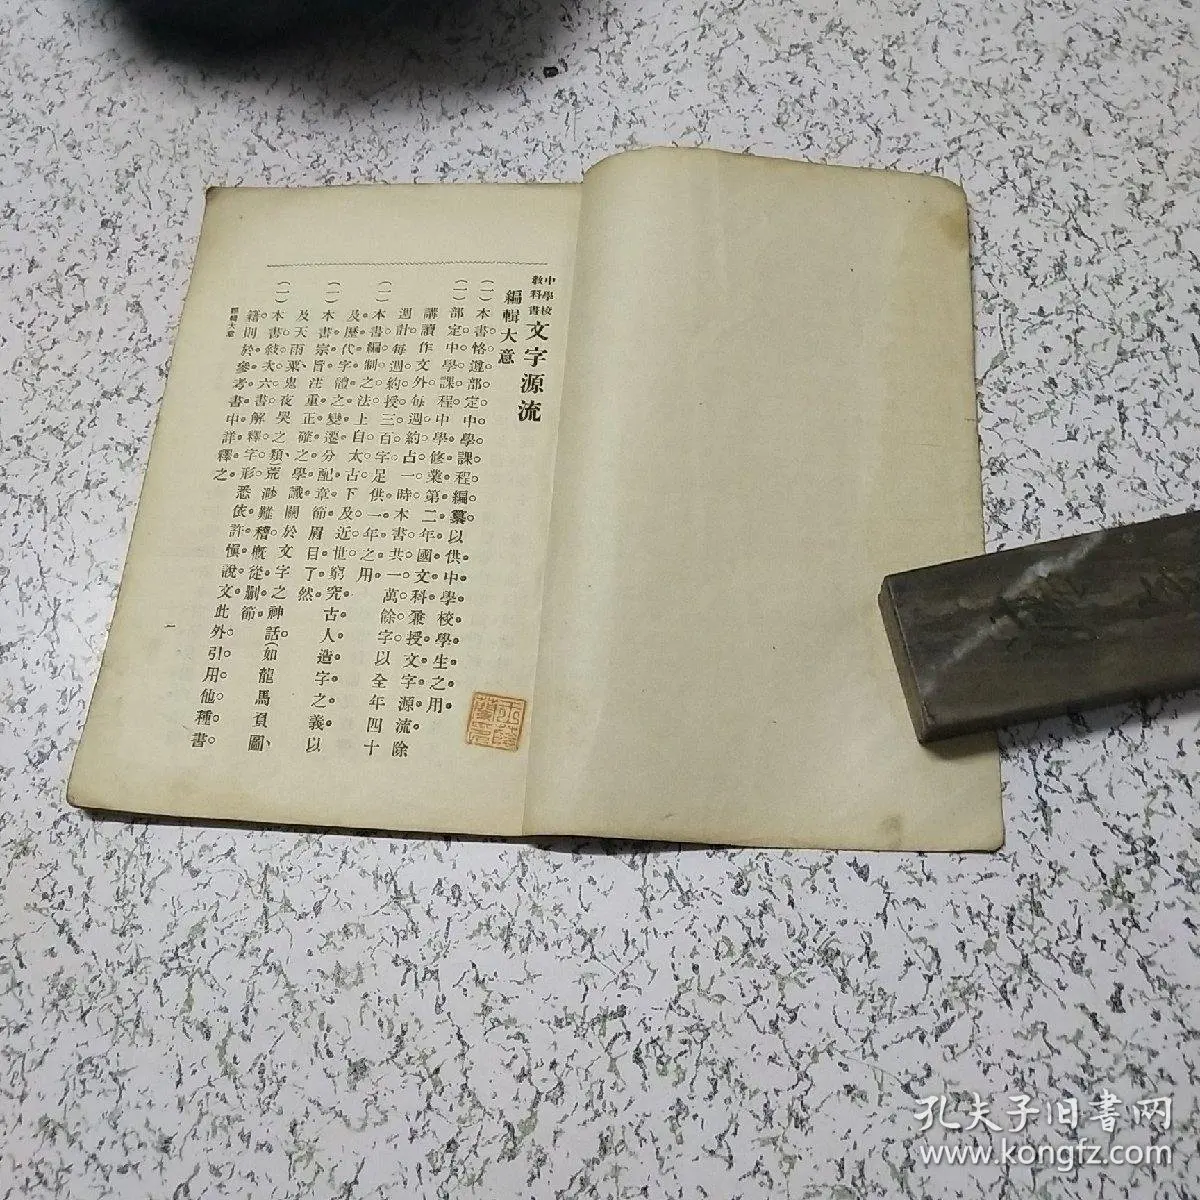 中學校
教科書
文字源流
編輯大意
(一)本書恪遵部定中學課程編纂以供中學校學生之用
(一)部定中學課程中學修業第二年國文科兼授文字源流除
講讀作文外每週約占一時本書共一萬餘字以全年四十
週計每週約授三百字足供一年之用
(一)本書編制之法上自太古下及近世窮究古人造字之義以
及歷代字體之變遷分配章節眉目了然
(一)本書宗旨注重正確之學識關於文字之神話(如龍馬負圖
及天雨粟鬼夜哭之類)荒渺難稽概從刪節
(一)本書敍次六書解釋字形悉依許愼說文此外引用他種書
籍則於參考書中詳釋之
編輯大意
一
孔夫子旧書网
www.kongfz.com